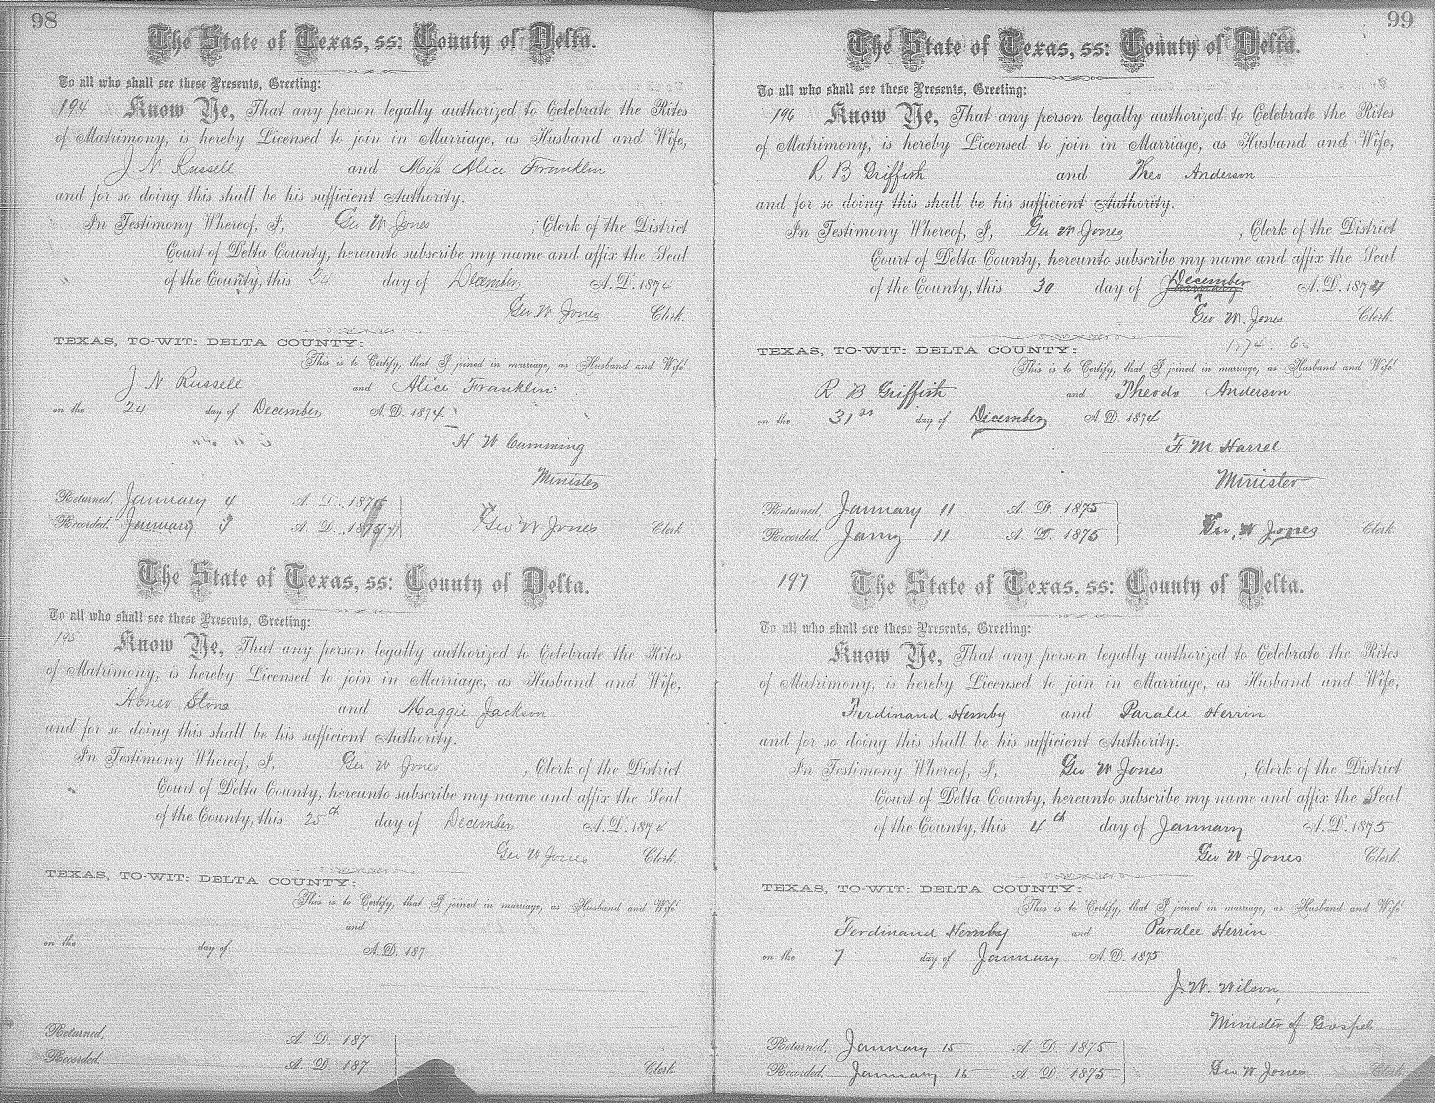 98
The State of Texas, ss: County of Delta.
To all who shall see these Presents, Greeting:
194 Know Ye, That any person legally authorized to Celebrate the Rites
of Matrimony, is hereby Licensed to join in Marriage, as Husband and Wife,
J N Russell and Miss Alice Franklin
and for so doing this shall be his sufficient Authority.
In Testimony Whereof, I, Geo W Jones, Clerk of the District
Court of Delta County, hereunto subscribe my name and affix the Seal
of the County, this 24 day of December A. D. 1874
Geo W Jones Clerk.
TEXAS, TO-WIT: DELTA COUNTY:
This is to Certify, that I joined in marriage, as Husband and Wife
J N Russell and Alice Franklin
on the 24 day of December A. D. 1874
H W Cumming
Minister
Returned, January 4 A. D. 187
Recorded, January A. D. 187
Geo W Jones Clerk
The State of Texas, ss: County of Delta.
To all who shall see these Presents, Greeting:
195 Know Ye, That any person legally authorized to Celebrate the Rites
of Matrimony, is hereby Licensed to join in Marriage, as Husband and Wife,
Abner Stone and Maggie Jackson
and for so doing this shall be his sufficient Authority.
In Testimony Whereof, I, Geo W Jones, Clerk of the District
Court of Delta County, hereunto subscribe my name and affix the Seal
of the County, this 25th day of December A. D. 1874
Geo W Jones Clerk.
TEXAS, TO-WIT: DELTA COUNTY:
This is to Certify, that I joined in marriage, as Husband and Wife
and
on the day of A. D. 187
Returned, A. D. 187
Recorded. A. D. 187
Clerk
99
The State of Texas, ss: County of Delta.
To all who shall see these Presents, Greeting:
196 Know Ye, That any person legally authorized to Celebrate the Rites
of Matrimony, is hereby Licensed to join in Marriage, as Husband and Wife,
R B Griffith and Theo Anderson
and for so doing this shall be his sufficient Authority.
In Testimony Whereof, I, Geo W Jones, Clerk of the District
Court of Delta County, hereunto subscribe my name and affix the Seal
of the County, this 30 day of December A. D. 187
Geo W. Jones Clerk.
TEXAS, TO-WIT: DELTA COUNTY:
This is to Certify, that I joined in marriage, as Husband and Wife
R B Griffith and Theodo Anderson
on the 31st day of December A. D. 1874
F M Harrel
Minister
Returned, January 11 A. D. 1875
Recorded. Jany 11 A. D. 1875
Geo, W Jones Clerk
197 The State of Texas, ss: County of Delta.
To all who shall see these Presents, Greeting:
Know Ye, That any person legally authorized to Celebrate the Rites
of Matrimony, is hereby Licensed to join in Marriage, as Husband and Wife,
Ferdinand Hemby and Paralee Herrin
and for so doing this shall be his sufficient Authority.
In Testimony Whereof, I, Geo W Jones, Clerk of the District
Court of Delta County, hereunto subscribe my name and affix the Seal
of the County, this 4th day of January A. D. 1875
Geo W Jones Clerk.
TEXAS, TO-WIT: DELTA COUNTY:
This is to Certify, that I joined in marriage, as Husband and Wife
Ferdinand Hemby and Paralee Herrin
on the 7 day of January A. D. 1875
J. W. Wilson,
Minister of Gospel
Returned, January 15 A. D. 1875
Recorded. January 15 A. D. 1875
Geo W Jones Clerk